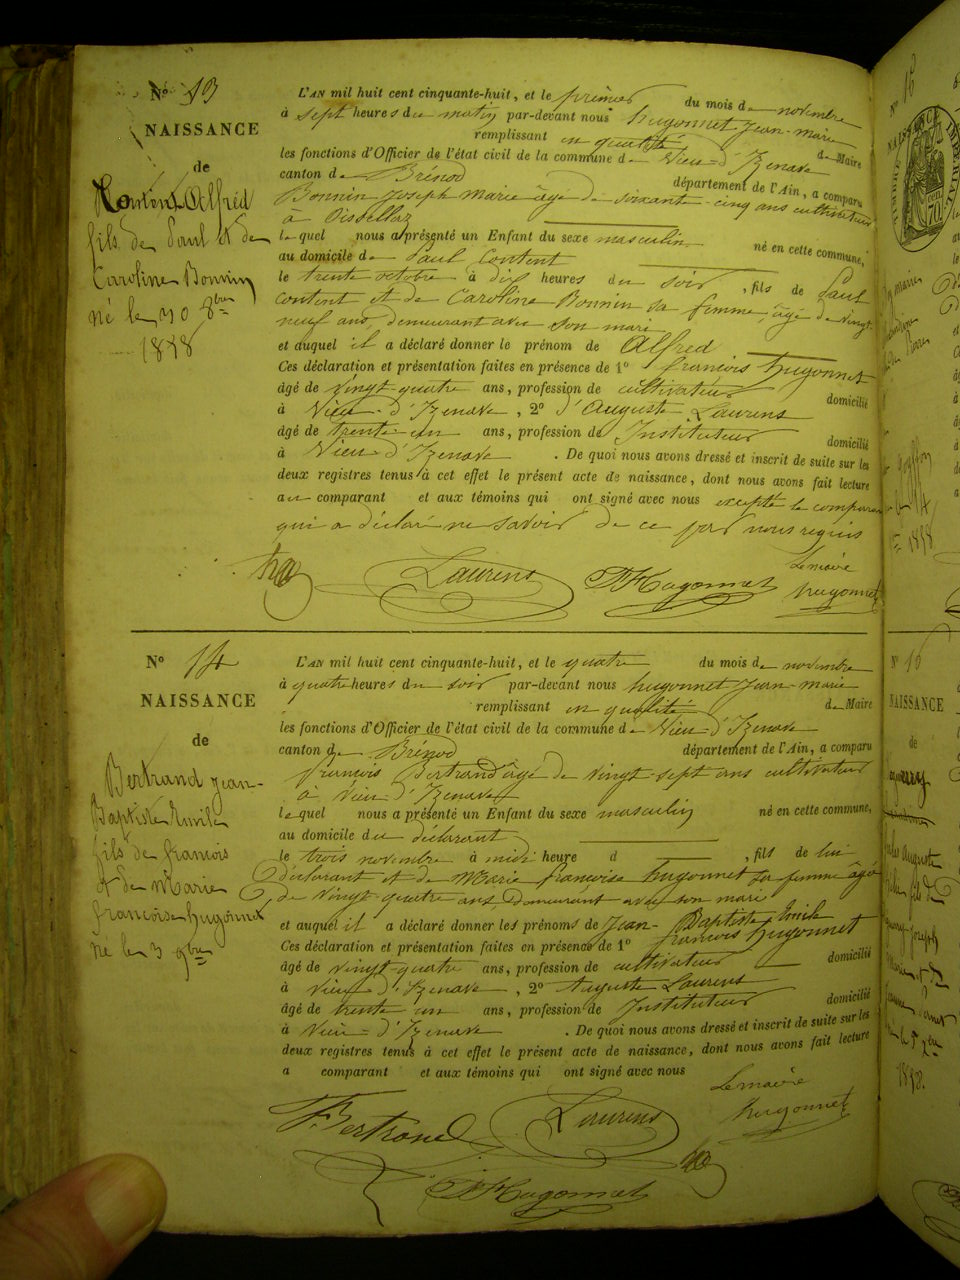 N° 13
NAISSANCE
de
Content Alfred
fils de Paul et de
Caroline Bonnin
né le 30 8bre
1858
L'AN mil huit cent cinquante-huit, et le premier du mois de novembre
à sept heures du matin par-devant nous hugonnet Jean-marie
remplissant en qualité de Maire
les fonctions d'Officier de l'état civil de la commune de Vieu-d'Izenave
canton de Brénod département de l'Ain, a comparu
Bonnin Joseph Marie âgé de soixante-cinq ans cultivateur
à
lequel nous a présenté un Enfant du sexe masculin né en cette commune,
au domicile de Paul Content
le trente octobre à dix heures du soir, fils de Paul
content et de Caroline Bonnin sa femme, âgée de vingt
neuf ans, demeurant avec son mari
et auquel il a déclaré donner le prénom de Alfred
Ces déclaration et présentation faites en présence de 1° françois hugonnet
âgé de vingt quatre ans, profession de cultivateur domicilié
à Vieu-d'Izenave, 2° d'Auguste Laurens
âgé de trente un ans, profession de Instituteur domicilié
à Vieu d'Izenave. De quoi nous avons dressé et inscrit de suite sur les
deux registres tenus à cet effet le présent acte de naissance, dont nous avons fait lecture
au comparant et aux témoins qui ont signé avec nous excepté le comparant
qui a déclaré ne savoir de ce par nous requis
Laurens
F Hugonnet
Le maire
hugonnet
N° 14
NAISSANCE
de
Bertrand jean-
Baptiste Emile
fils de francois
et de Marie
francoise hugonnet
né le 3 9bre
L'AN mil huit cent cinquante-huit, et le quatre du mois de novembre
à quatre heures du soir par-devant nous hugonnet Jean-marie
remplissant en qualité de Maire
les fonctions d'Officier de l'état civil de la commune de Vieu-d'Izenave
canton de Brénod département de l'Ain, a comparu
françois Bertrand âgé de vingt-sept ans cultivateur
à Vieu-d'Izenave
lequel nous a présenté un Enfant du sexe masculin né en cette commune,
au domicile du déclarant
le trois novembre à midi heure d, fils de lui
déclarant et de Marie françoise hugonnet sa femme âgée
de vingt quatre ans demeurant avec son mari
et auquel il a déclaré donner les prénoms de Jean-Baptiste Emile
Ces déclaration et présentation faites en présence de 1° francois hugonnet
âgé de vingt-quatre ans, profession de cultivateur domicilié
à Vieu d'Izenave, 2° Auguste Laurens
âgé de trente un ans, profession de Instituteur domicilié
à Vieu-d'Izenave. De quoi nous avons dressé et inscrit de suite sur les
deux registres tenus à cet effet le présent acte de naissance, dont nous avons fait lecture
a comparant et aux témoins qui ont signé avec nous
Le maire
hugonnet
F. Bertrand
Laurens
F Hugonnet
N° 16
NAISSANCE
de
1858.